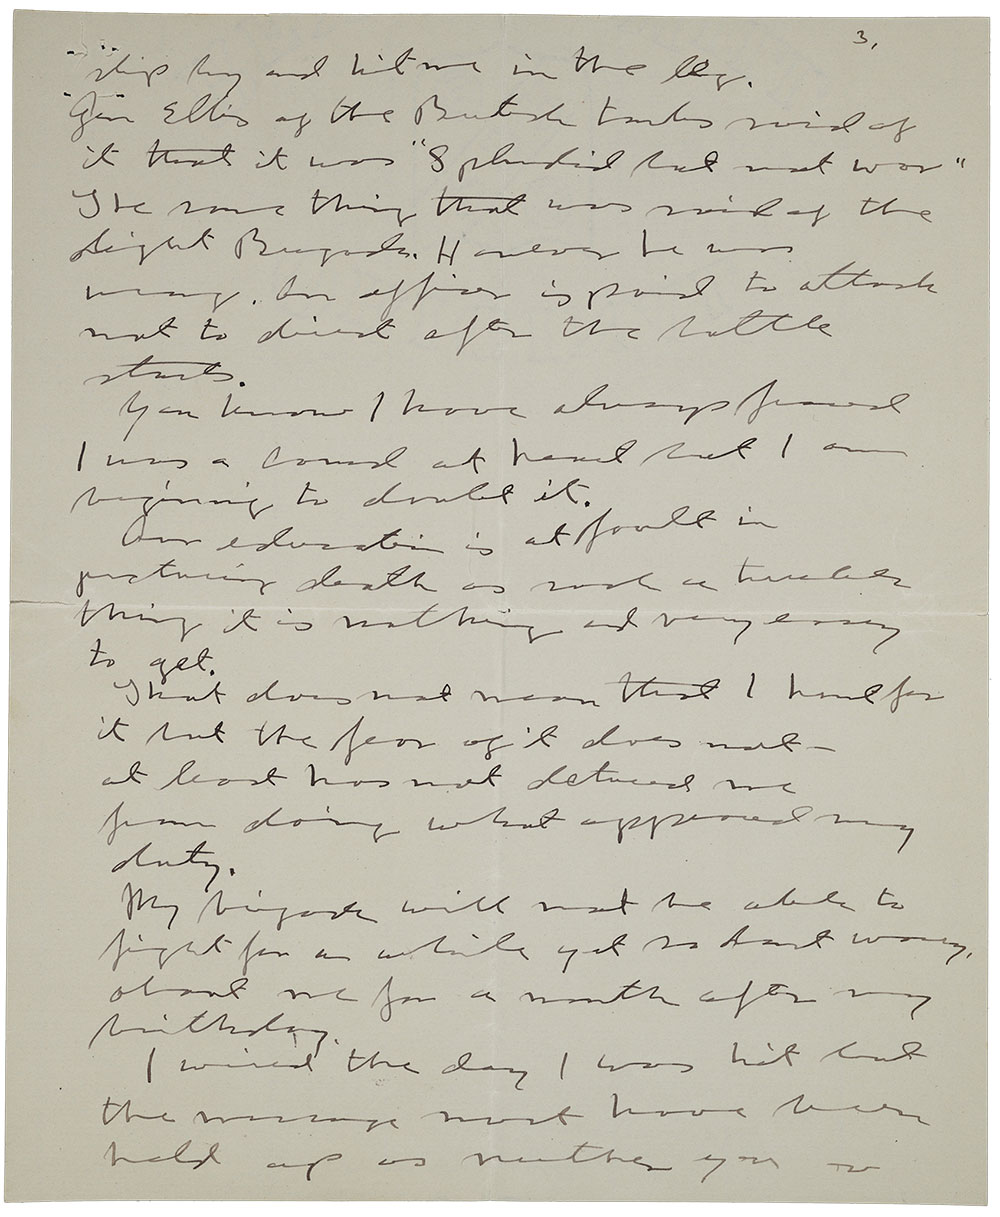 3.
slip by and hit me in the leg.
Gen Ellis of the British tanks said of
it that it was "Splendid but not war"
The same thing that was said of the
Light Brigade. However he was
wrong. An officer is paid to attack
not to direct after the battle
starts.
You know I have always feared
I was a coward at heart but I am
beginning to doubt it.
Our education is at fault in
picturing death as such a terrible
thing it is nothing and very easy
to get.
That does not mean that I hunt for
it but the fear of it does not –
at least has not detered me
from doing what appeared my
duty.
My brigade will not be able to
fight for a while yet so dont worry
about me for a month after my
birthday.
I wired the day I was hit but
the message must have been
held up as neither you or